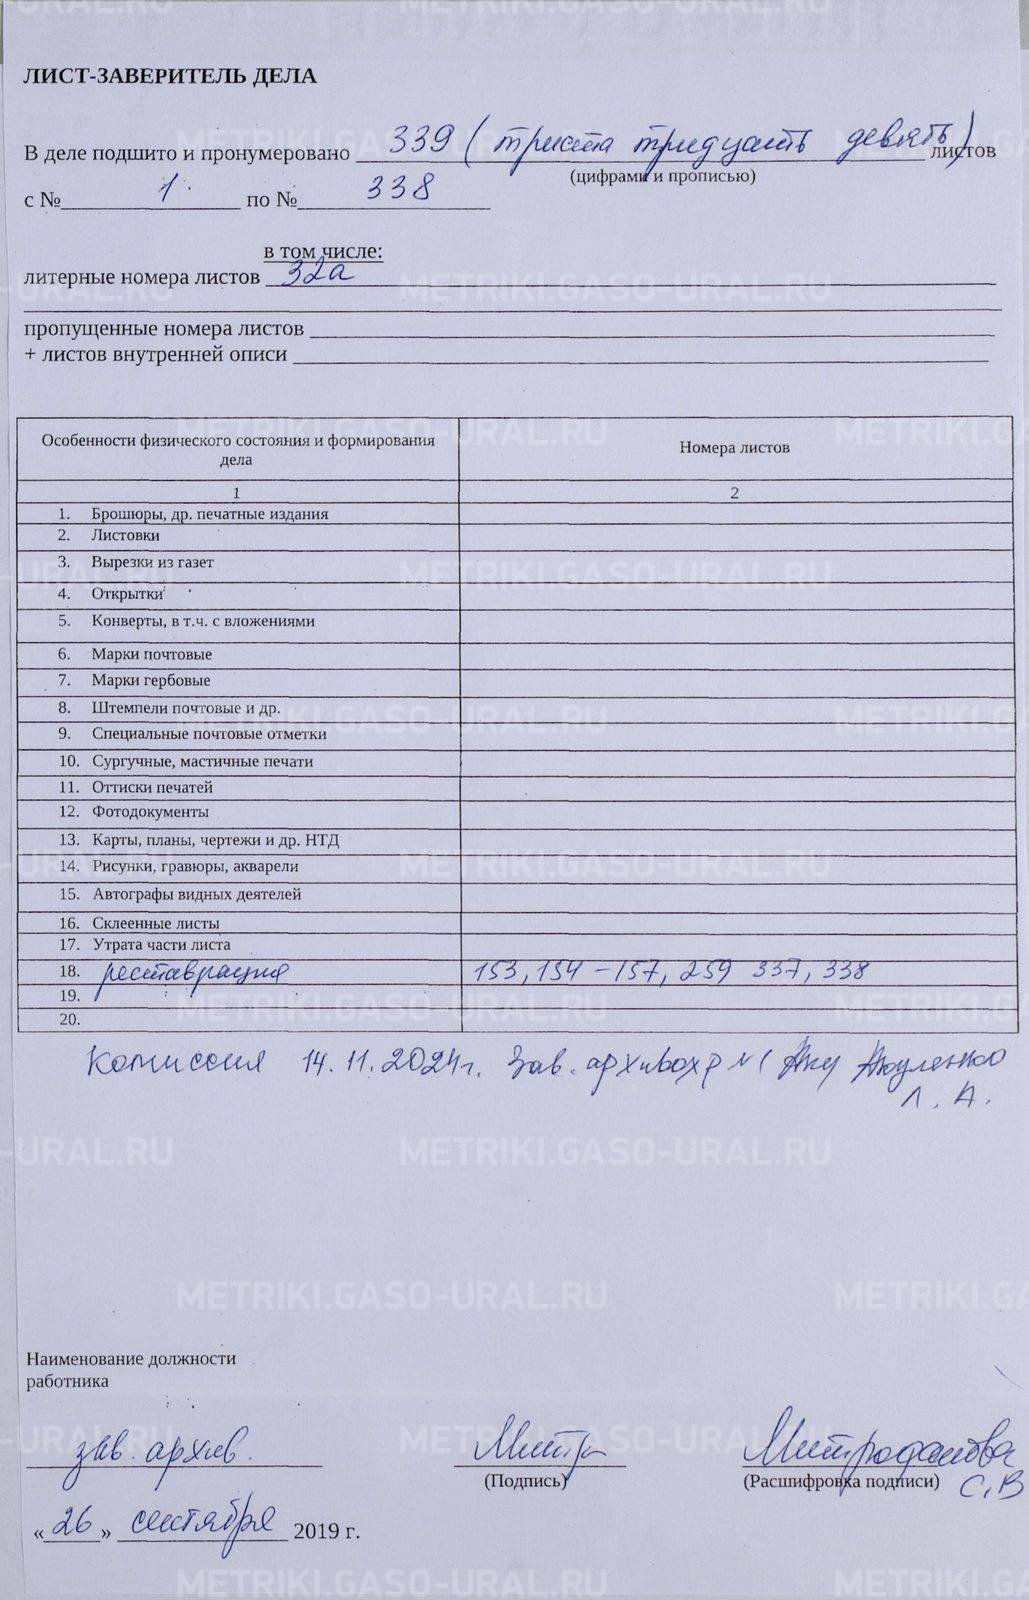 ЛИСТ-ЗАВЕРИТЕЛЬ ДЕЛА
В деле подшито и пронумеровано 339 (триста тридцать девять) листов
(цифрами и прописью)
с № 1 по № 338
в том числе:
литерные номера листов 32а
пропущенные номера листов
+ листов внутренней описи
Особенности физического состояния и формирования дела
Номера листов
1 2
1. Брошюры, др. печатные издания
2. Листовки
3. Вырезки из газет
4. Открытки
5. Конверты, в т.ч. с вложениями
6. Марки почтовые
7. Марки гербовые
8. Штемпели почтовые и др.
9. Специальные почтовые отметки
10. Сургучные, мастичные печати
11. Оттиски печатей
12. Фотодокументы
13. Карты, планы, чертежи и др. НТД
14. Рисунки, гравюры, акварели
15. Автографы видных деятелей
16. Склеенные листы
17. Утрата части листа
18. реставрация 153, 154 – 157, 259 337, 338
19.
20.
Комиссия 14.11.2024г. Зав. архивохр №1
Л. А.
Наименование должности
работника
зав. архив. Митр Митрофанова
(Подпись) (Расшифровка подписи) С.В
«26» сентября 2019 г.
METRIKI.GASO-URAL.RU